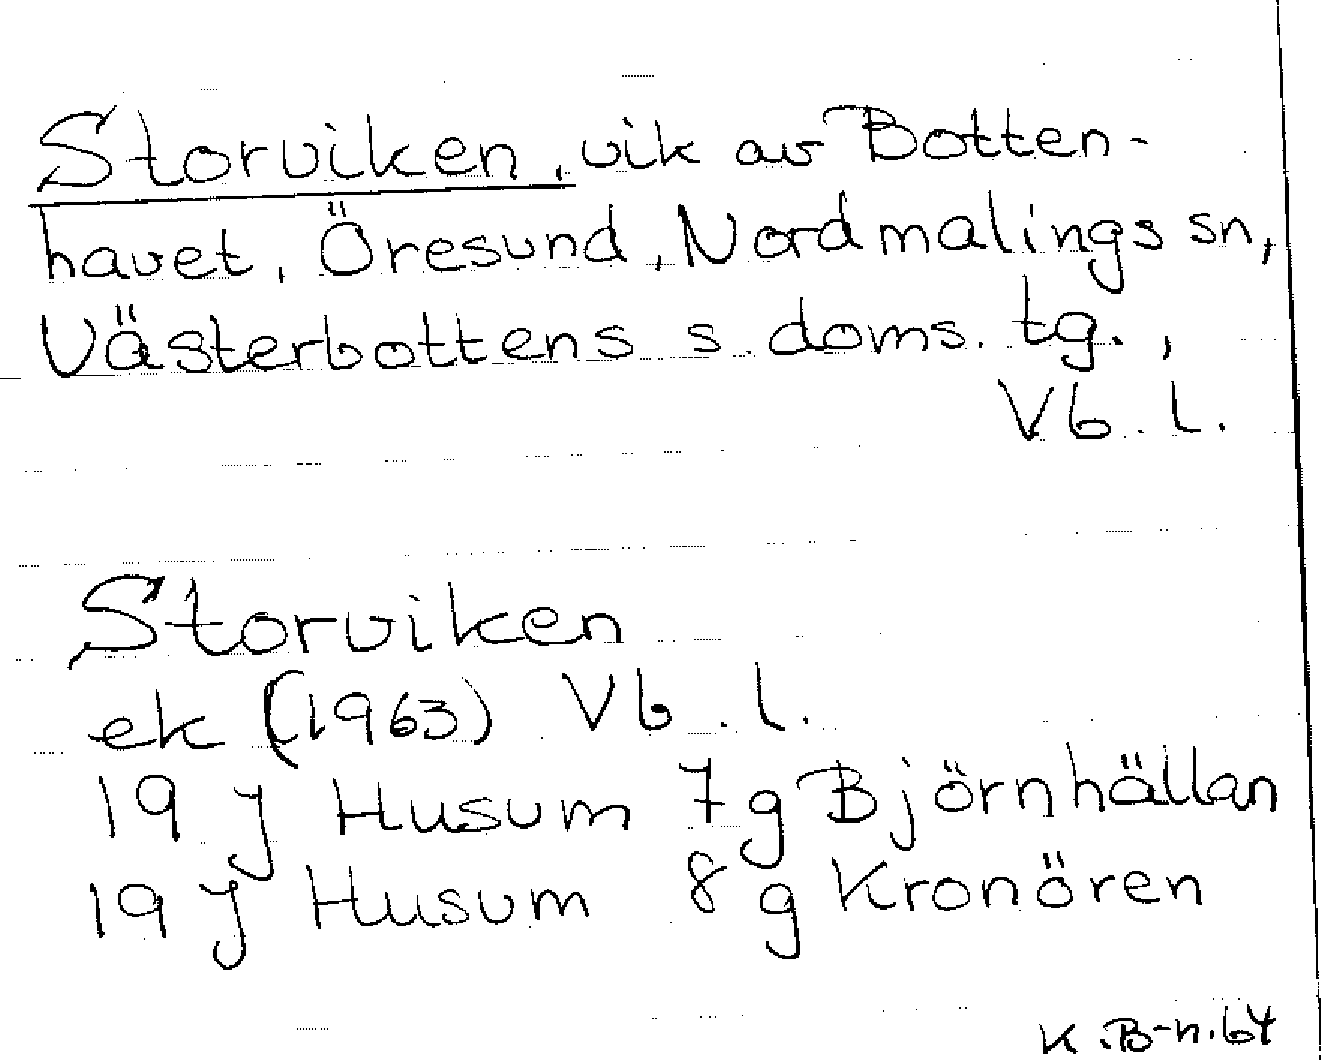 Storviken, vik av Botten-
havet, Öresund, Nordmalings sn,
Västerbottens s. doms. tg.,
Vb. l.
Storviken
ek (1963) Vb. l.
19 J Husum 7g Björnhällan
19 J Husum 8g Kronören
K.B-n.64